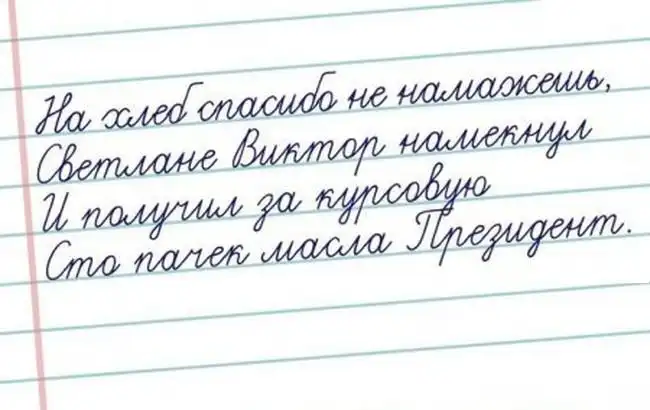 На хлеб спасибо не намажешь,
Светлане Виктор намекнул
И получил за курсовую
Сто пачек масла Президент.